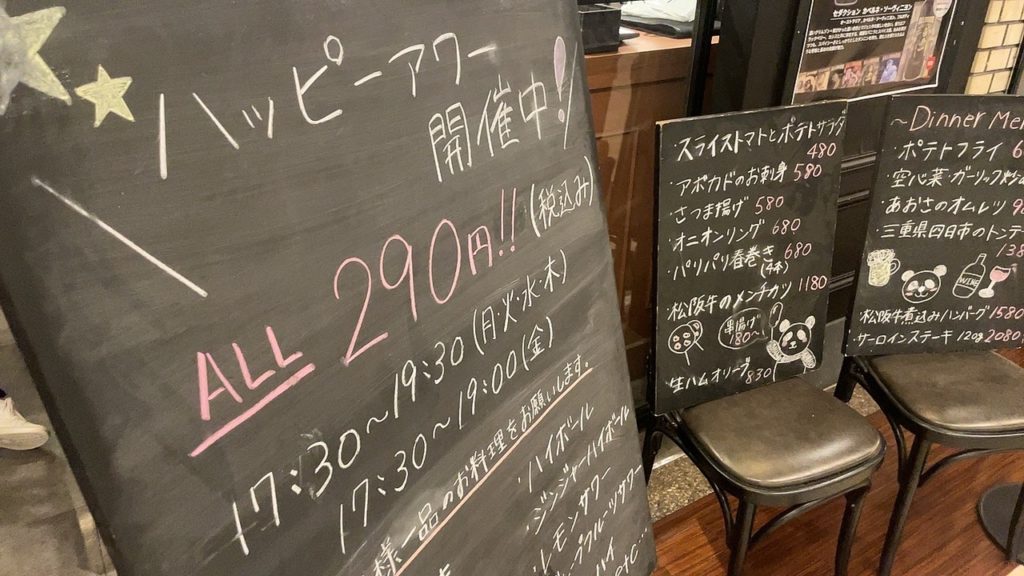 ハッピーアワー
開催中!
ALL 290円!!(税込み)
17:30~19:30(月・火・水・木)
17:30~19:00(金)
様一品のお料理をお願いします。
・ハイボール
・ジンジャーハイボール
・レモンサワー
スライストマトとポテトサラダ
480
・アボカドのお刺身 580
・さつま揚げ 580
・オニオンリング 680
・パリパリ春巻き 680
松阪牛のメンチカツ 1180
串揚げ
180~
生ハムオリーブ 830
~Dinner Me
・ポテトフライ
・空心菜ガーリック炒
・あおさのオムレツ
・三重県四日市のトンテ
WINE
松阪牛煮込みハンバーグ 1580
サーロインステーキ 120g 2080
セダクション カベルネ・ソーヴィニヨン